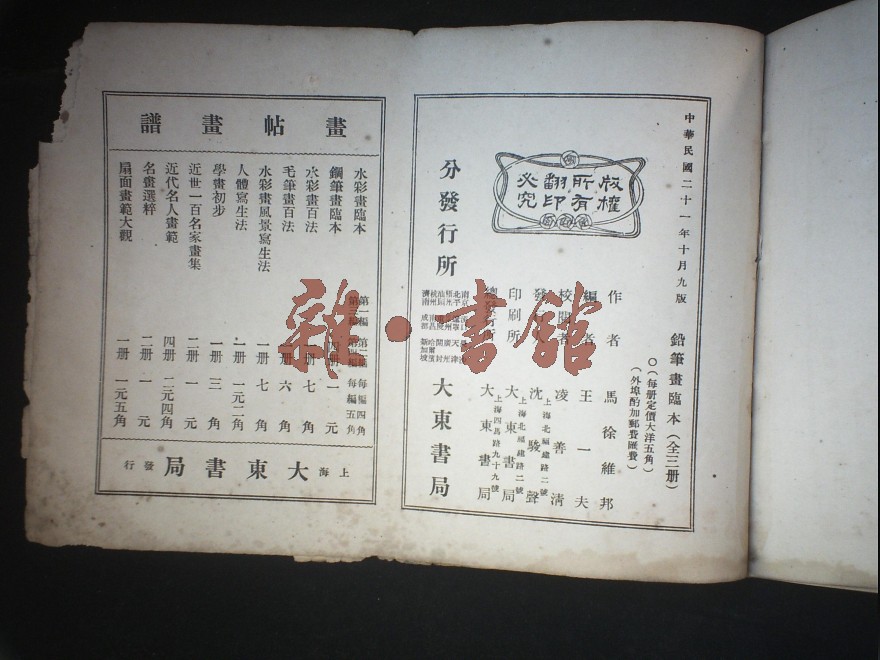 中華民國二十一年十月九版
鉛筆畫臨本（全三册）
（每册定價大洋五角）
（外埠酌加郵費匯費）
版權所有翻印必究
作者 馬徐維邦
編者 王一夫
校閱者 凌善清
發行人 沈駿聲
上海北福建路二號
印刷所 大東書局
上海北福建路二號
總發行所 大東書局
上海四馬路九十九號
分發行所 大東書局
畫帖畫譜
水彩畫臨本 第一編 第二編 每編四角
鋼筆畫臨本 四册 一元
水彩畫百法 一册 七角
毛筆畫百法 一册 六角
水彩畫風景寫生法 一册 七角
人體寫生法 一册 一元二角
學畫初步 一册 三角
近世一百名家畫集 二册 一元
近代名人畫範 四册 二元四角
名畫選粹 二册 一元
扇面畫範大觀 一册 一元五角
上海大東書局發行
雜·書館